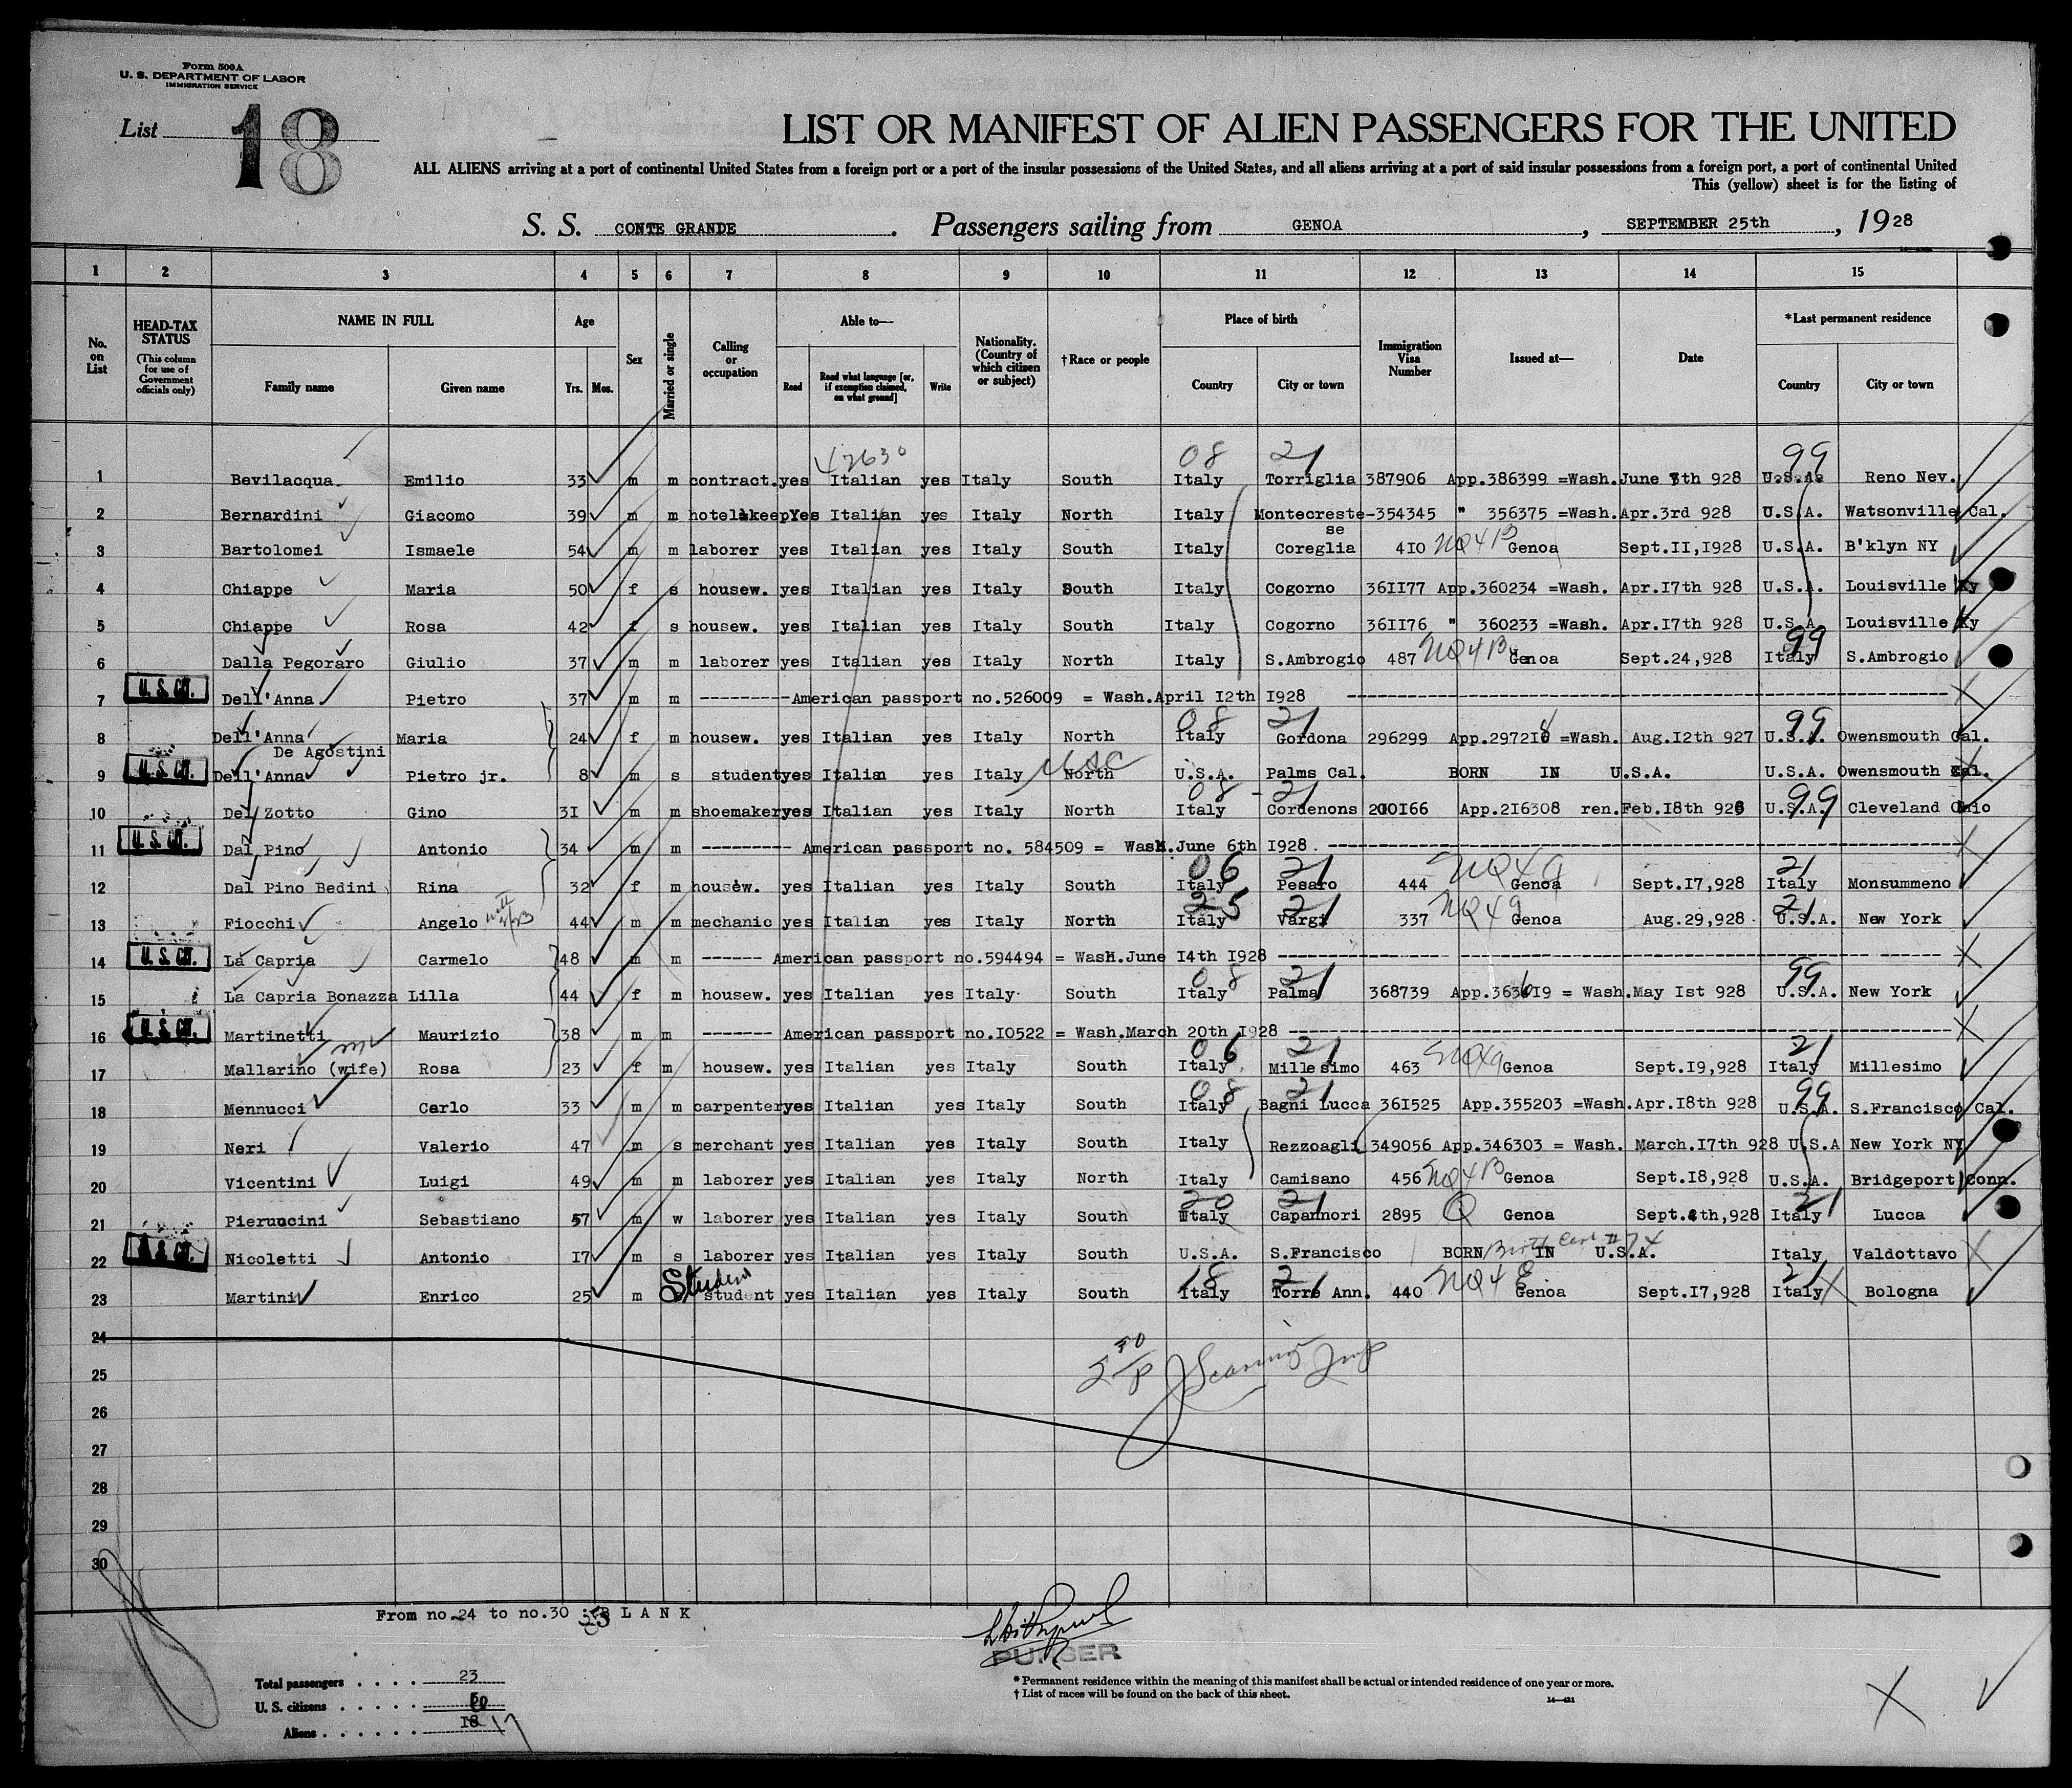 Form 500A
U. S. DEPARTMENT OF LABOR
IMMIGRATION SERVICE
List 18
LIST OR MANIFEST OF ALIEN PASSENGERS FOR THE UNITED
ALL ALIENS arriving at a port of continental United States from a foreign port or a port of the insular possessions of the United States, and all aliens arriving at a port of said insular possessions from a foreign port, a port of continental United
This (yellow) sheet is for the listing of
S. S. CONTE GRANDE . Passengers sailing from GENOA , SEPTEMBER 25th , 1928
1 2 3 4 5 6 7 8 9 10 11 12 13 14 15
No. on List
HEAD-TAX STATUS (This column for use of Government officials only)
NAME IN FULL Family name Given name
Age Yrs. Mos.
Sex
Married or single
Calling or occupation
Able to— Read Read what language [or, if exemption claimed, on what ground] Write
Nationality. (Country of which citizen or subject)
†Race or people
Place of birth Country City or town
Immigration Visa Number
Issued at—
Date
*Last permanent residence Country City or town
42630 08 21 99
1 Bevilacqua Emilio 33 m m contract. yes Italian yes Italy South Italy Torriglia 387906 App.386399 =Wash. June th 928 U.S.A. Reno Nev.
2 Bernardini Giacomo 39 m m hotelkeep Yes Italian yes Italy North Italy Montecreste-se 354345 " 356375 =Wash. Apr.3rd 928 U.S.A. Watsonville Cal.
3 Bartolomei Ismaele 54 m m laborer yes Italian yes Italy South Italy Coreglia 4I0 NQ4B Genoa Sept.II,I928 U.S.A. B'klyn NY
4 Chiappe Maria 50 f s housew. yes Italian yes Italy South Italy Cogorno 36II77 App.360234 =Wash. Apr.I7th 928 U.S.A. Louisville Ky
5 Chiappe Rosa 42 f s housew. yes Italian yes Italy South Italy Cogorno 36II76 " 360233 =Wash. Apr.I7th 928 U.S.A. Louisville Ky
6 Dalla Pegoraro Giulio 37 m m laborer yes Italian yes Italy North Italy S.Ambrogio 487 NQ4B Genoa Sept.24,928 Italy 99 S.Ambrogio
7 U.S. CIT. Dell'Anna Pietro 37 m m --------- American passport no.526009 = Wash.April I2th I928
08 21 99
8 Dell'Anna De Agostini Maria 24 f m housew. yes Italian yes Italy North Italy Gordona 296299 App.29721 =Wash. Aug.I2th 927 U.S.A. Owensmouth Cal.
9 U.S. CIT. Dell'Anna Pietro jr. 8 m s student yes Italian yes Italy North USC U.S.A. Palms Cal. BORN IN U.S.A. U.S.A. Owensmouth Cal.
08 21 99
10 Del Zotto Gino 3I m m shoemaker yes Italian yes Italy North Italy Cordenons 200I66 App.2I6308 ren. Feb.I8th 928 U.S.A. Cleveland Ohio
11 U.S. CIT. Dal Pino Antonio 34 m m --------- American passport no. 584509 = Wash.June 6th I928
06 21 21
12 Dal Pino Bedini Rina 32 f m housew. yes Italian yes Italy South Italy Pesaro 444 NQ49 Genoa Sept.I7,928 Italy Monsummeno
25 21 21
13 Fiocchi Angelo 44 m m mechanic yes Italian yes Italy North Italy Vargi 337 NQ49 Genoa Aug.29,928 U.S.A. New York
14 U.S. CIT. La Capria Carmelo 48 m m ------ American passport no.594494 = Wash.June I4th I928
08 21 99
15 La Capria Bonazza Lilla 44 f m housew. yes Italian yes Italy South Italy Palma 368739 App.363619 = Wash. May Ist 928 U.S.A. New York
16 U.S. CIT. Martinetti Maurizio 38 m m ------- American passport no.I0522 = Wash.March 20th I928
06 21 21
17 Mallarino (wife) Rosa 23 f m housew. yes Italian yes Italy South Italy Millesimo 463 NQ49 Genoa Sept.I9,928 Italy Millesimo
08 21 99
18 Mennucci Carlo 33 m m carpenter yes Italian yes Italy South Italy Bagni Lucca 36I525 App.355203 =Wash. Apr.I8th 928 U.S.A. S.Francisco Cal.
19 Neri Valerio 47 m s merchant yes Italian yes Italy South Italy Rezzoagli 349056 App.346303 = Wash. March.I7th 928 U.S.A New York NY
20 Vicentini Luigi 49 m m laborer yes Italian yes Italy North Italy Camisano 456 NQ4B Genoa Sept.I8,928 U.S.A. Bridgeport Conn.
20 21 21
21 Pieruncini Sebastiano 57 m w laborer yes Italian yes Italy South Italy Capannori 2895 Q Genoa Sept. th,928 Italy Lucca
22 U.S. CIT. Nicoletti Antonio I7 m s laborer yes Italian yes Italy South U.S.A. S.Francisco BORN IN U.S.A. Birth Cert Italy Valdottavo
18 21 21
23 Martini Enrico 25 m Student student yes Italian yes Italy South Italy Torre Ann. 440 NQ4E Genoa Sept.I7,928 Italy Bologna
24
25
26
27
28
29
30
From no.24 to no.30 BLANK
PURSER
Total passengers . . . . 23
U. S. citizens . . . . .
Aliens . . . . . . I8 17
*Permanent residence within the meaning of this manifest shall be actual or intended residence of one year or more.
†List of races will be found on the back of this sheet.
14—421